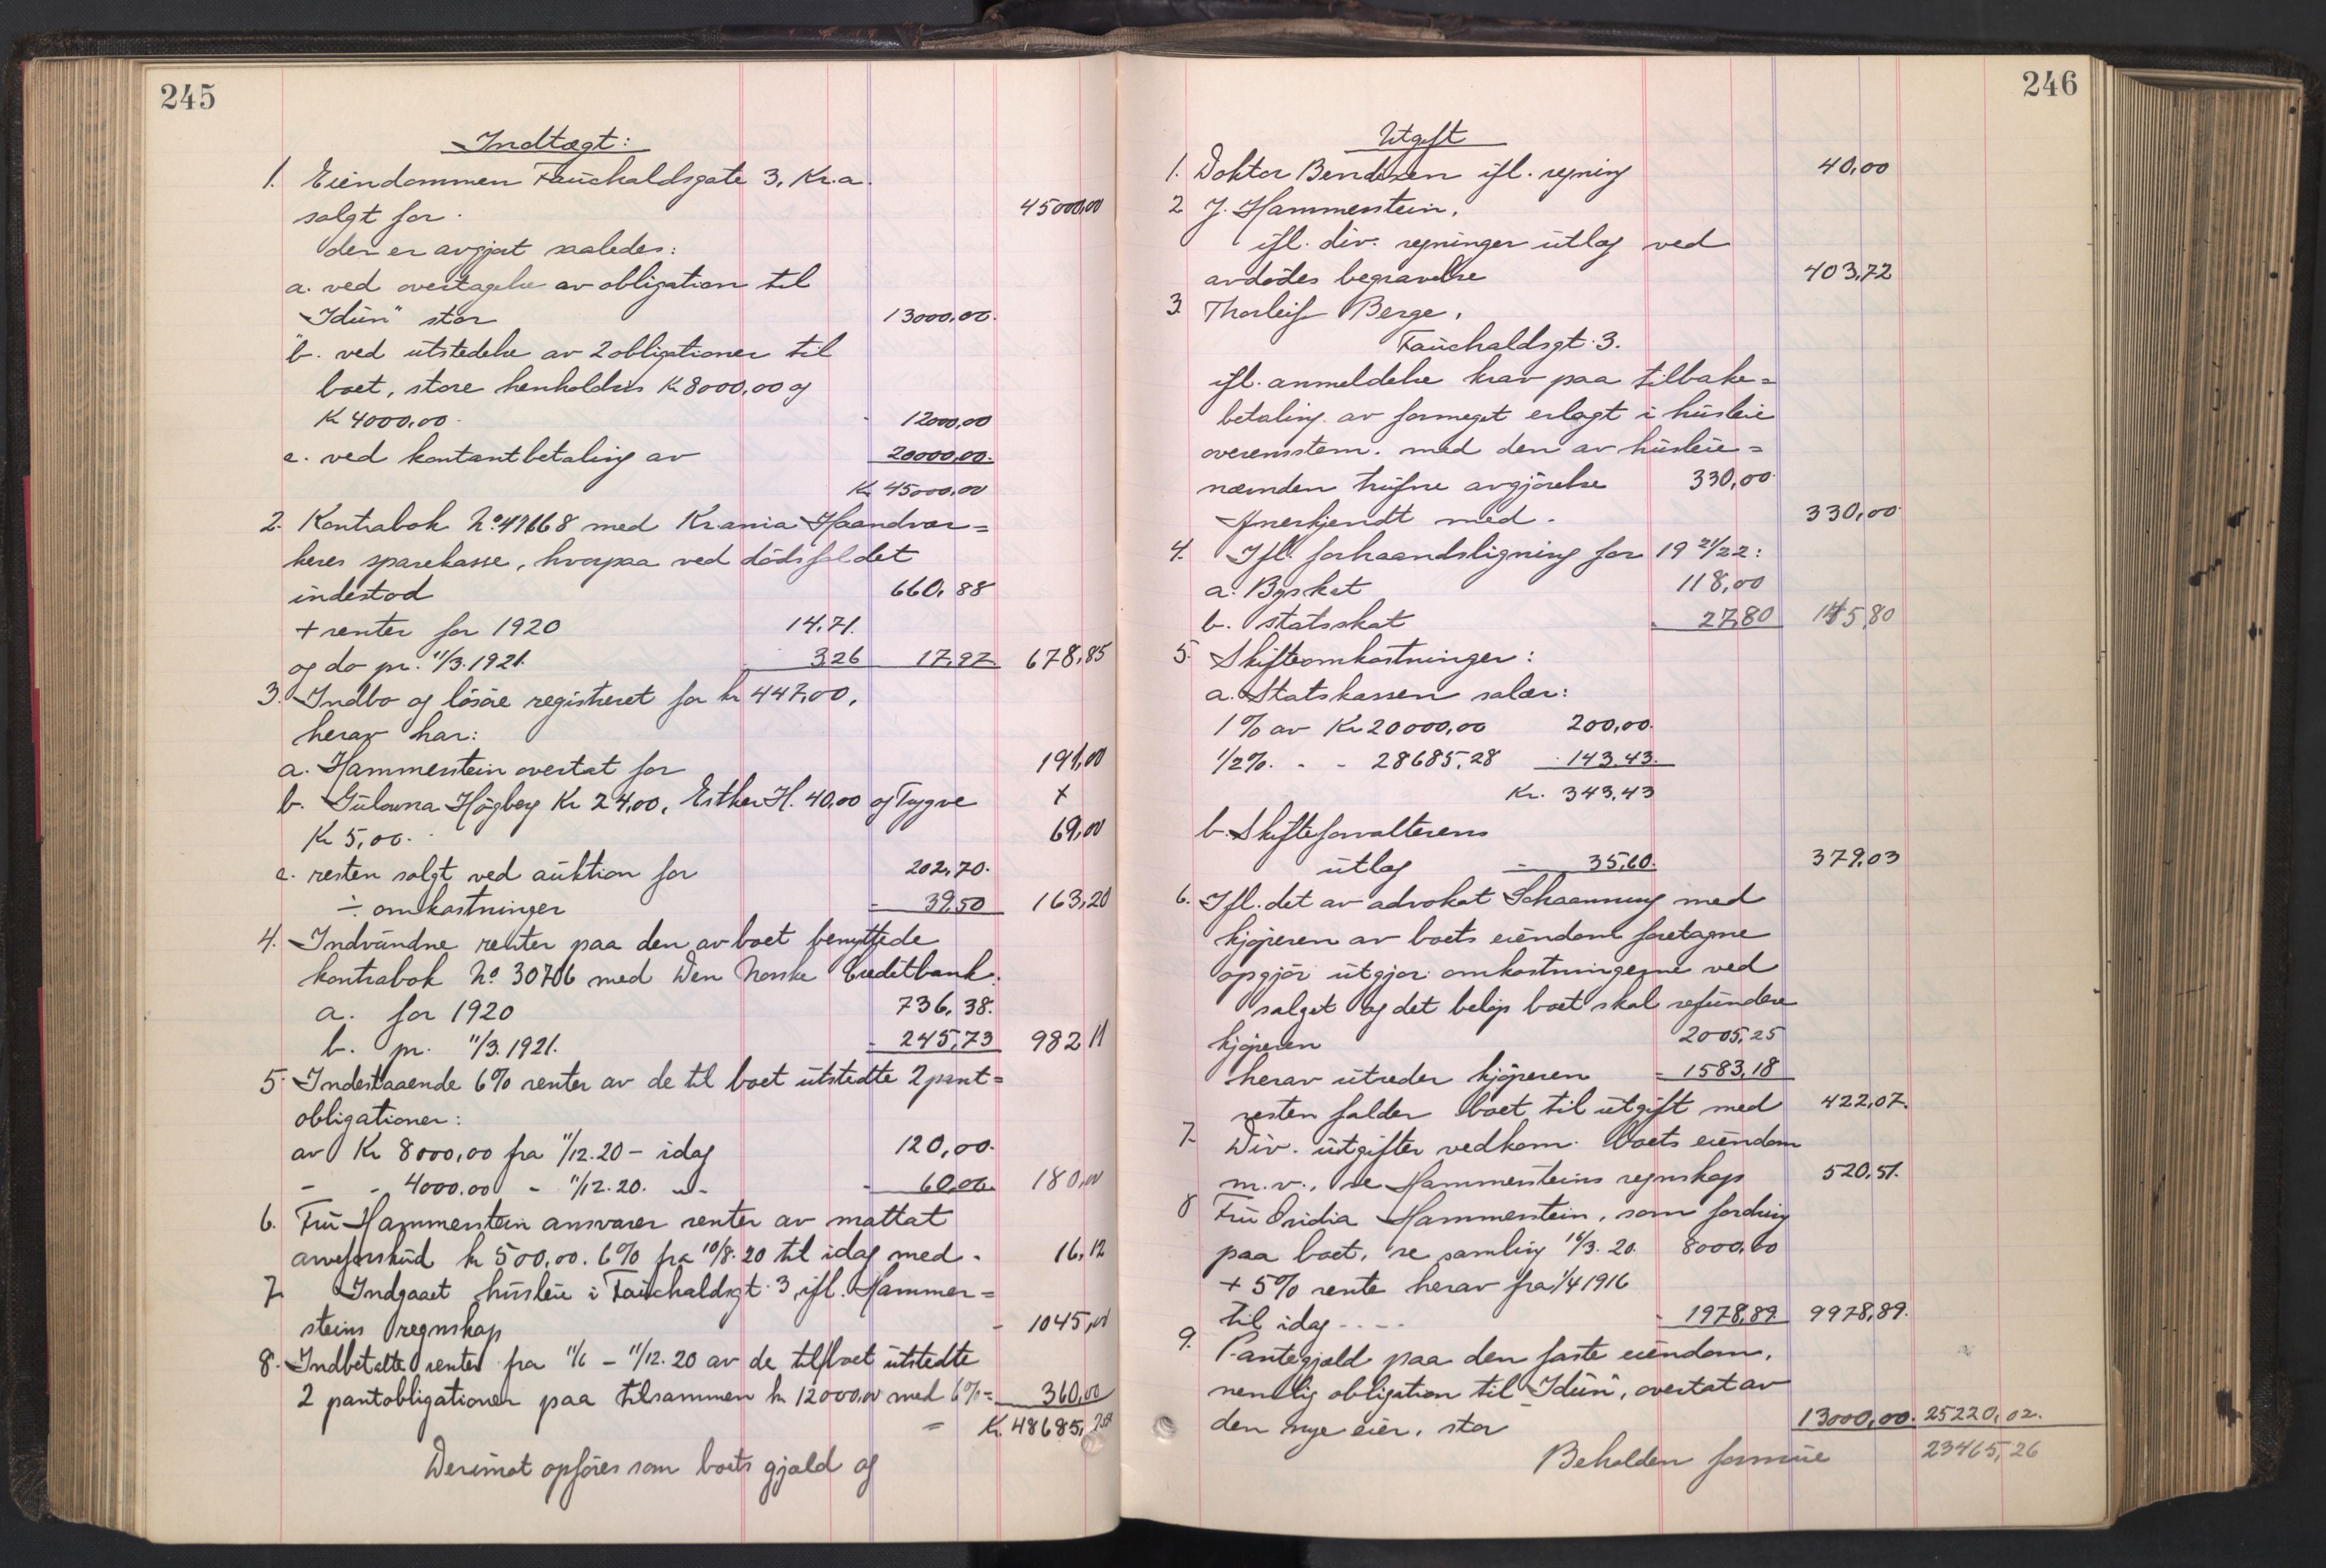 245
Indtægt:
1. Eiendommen Fauchaldsgate 3, Kr.a.
solgt for 45000,00
der er avgjort saaledes:
a. ved overtagelse av obligation til
"Idun" stor 13000,00.
b. ved utstedelse av 2 obligationer til
boet, store henholdsvis Kr 8000,00 og
Kr 4000,00 - 12000,00
c. ved kontantbetaling av 20000,00.
Kr. 45000,00
2. Kontrabok No. 49668 med Kr.ania Haandvær=
keres sparekasse, hvorpaa ved dödsfaldet
indestod 660,88
+ renter for 1920 14,71.
og do pr. 11/3.1921. 3,26 17,97 678,85
3. Indbo og lösöre registreret for kr 447,00,
herav har:
a. Hammerstein overtat for 191,00
b. Gulowna Högberg Kr 24,00, Esther H. 40,00 og Trygve +
Kr 5,00. 69,00
c. resten solgt ved auktion for 202,70.
÷ omkostninger - 39,50 163,20
4. Indvundne renter paa den av boet benyttede
kontrabok No. 30706 med Den Norske Creditbank.
a. for 1920 736,38.
b. pr. 11/3.1921. - 245,73 982,11
5. Indestaaende 6% renter av de til boet utstedte 2 pant=
obligationer:
av Kr 8000,00 fra 11/12.20 - idag 120,00.
- - 4000.00 - 11/12.20. -"- - 60,00. 180,00
6. Fru Hammerstein ansvarer renter av mottat
arveforskud kr 500,00. 6% fra 10/8.20 til idag med - 16,12
7. Indgaaet husleie i Fauchaldsgt. 3, ifl. Hammer=
steins regnskap - 1045,00
8. Indbetalte renter fra 11/6 - 11/12.20 av de til boet utstedte
2 pantobligationer paa tilsammen kr 12000,00 med 6% = 360,00
= Kr. 48685,28
Derimot opföres som boets gjæld og
246
Utgift
1. Doktor Bendixen ifl. regning 40,00
2 J. Hammerstein,
ifl. div. regninger utlæg ved
avdödes begravelse 403,72
3. Thorleif Berge,
Fauchaldsgt. 3.
ifl. anmeldelse krav paa tilbake=
betaling av formeget erlagt i husleie
overensstem. med den av husleie=
nævnden trufne avgjörelse 330,00
Anerkjendt med - 330,00
4. Ifl. forhaandsligning for 19 21/22:
a. Byskat 118,00
b. Statsskat - 27,80 145,80
5. Skifteomkostninger:
a. Statskassen salær:
1% av Kr 20000,00 200,00.
1/2% - - 28685,28 - 143,43.
Kr. 343,43
b. Skifteforvalterens
utlæg - 35,60. 379,03
6. Ifl. det av advokat Schaanning med
kjöperen av boets eiendom foretagne
opgjör utgjör omkostningerne ved
salget og det belöp boet skal refundere
kjöperen 2005,25
herav utreder kjöperen - 1583,18
resten falder boet til utgift med 422,07.
7. Div. utgifter vedkom. boets eiendom
m.v., se Hammersteins regnskap 520,51.
8 Fru Ovidia Hammerstein, som fordring
paa boet, se samling 16/3.20. 8000,00
+ 5% rente herav fra 1/4 1916
til idag - - - - - 1978,89 9978,89.
9. Pantegjæld paa den faste eiendom,
nemlig obligation til "Idun", overtat av
den nye eier, stor 13000,00. 25220,02.
Beholden formue 23465,26